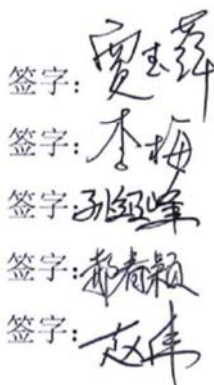 签字：贾玉萍
签字：李梅
签字：孙绍峰
签字：郝春颖
签字：赵伟